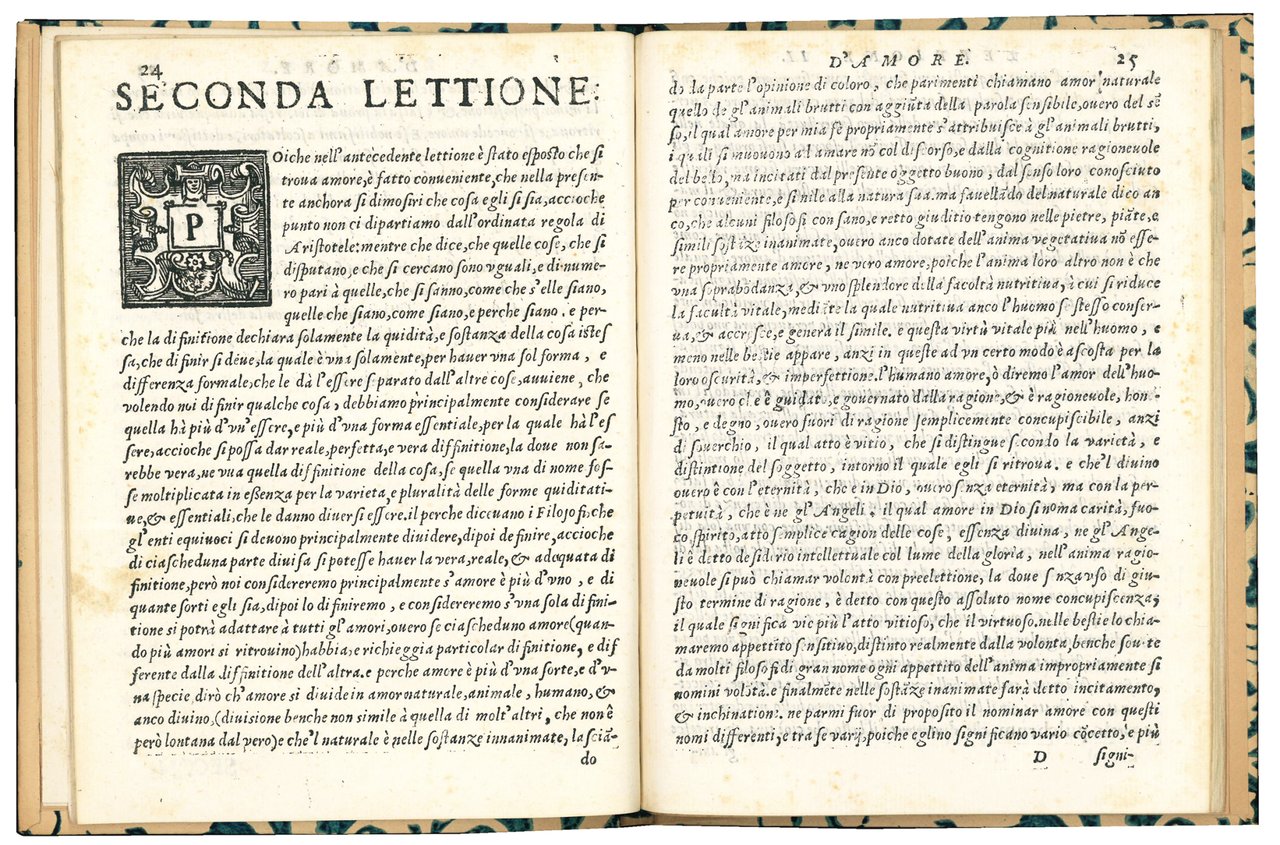 24
SECONDA LETTIONE.
P
Oiche nell'antecedente lettione è stato esposto che si
trova amore, è fatto conveniente, che nella presen-
te anchora si dimostri che cosa egli si sia, accioche
punto non ci dipartiamo dall'ordinata regola di
Aristotele: mentre che dice, che quelle cose, che si
disputano, e che si cercano sono vguali, e di nume-
ro pari à quelle, che si sanno, come che s'elle siano,
quelle che siano, come siano, e perche siano. e per-
che la difinitione dechiara solamente la quidità, e sostanza della cosa istes
sa, che difinir si deue, la quale è vna solamente, per hauer vna sol forma, e
differenza formale, che le dà l'essere separato dall'altre cose, auuiene, che
volendo noi difinir qualche cosa, debbiamo principalmente considerare se
quella hà più d'vn'essere, e più d'vna forma essentiale, per la quale hà l'es
sere, accioche si possa dar reale, perfetta, e vera diffinitione, la doue non sa-
rebbe vera, ne vua quella diffinitione della cosa, se quella vna di nome fos-
se moltiplicata in essenza per la varieta, e pluralità delle forme quiditati-
ue, & essentiali, che le danno diuersi essere. il perche diceuano i Filosofi, che
gl'enti equiuoci si deuono principalmente diuidere, dipoi definire, accioche
di ciascheduna parte diuisa si potesse hauer la vera, reale, & adequata di
finitione, però noi considereremo principalmente s'amore è più d'vno, e di
quante sorti egli sia, dipoi lo difiniremo, e considereremo s'vna sola difini-
tione si potrà adattare à tutti gl'amori, ouero se ciascheduno amore (quan-
do più amori si ritrouino) habbia, e richieggia particolar difinitione, e dif
ferente dalla diffinitione dell'altra. e perche amore è più d'vna sorte, e d'v-
na specie, dirò ch'amore si diuide in amor naturale, animale, humano, &
anco diuino, (diuisione benche non simile à quella di molt'altri, che non è
però lontana dal vero) e che'l naturale è nelle sostanze innanimate, lascià-
do
D'AMORE.
25
do da parte l'opinione di coloro, che parimenti chiamano amor naturale
quello de gl'animali brutti con aggiũta della parola sensibile, ouero del sẽ
so, il qual amore per mia fe propriamente s'attribuisce à gl'animali brutti,
i quali si muouono al amare nõ col discorso, e dalla cognitione ragioneuole
del bello, ma incitati dal presente oggetto buono, dal senso loro conosciuto
per conueniente, e simile alla natura sua. ma fauellãdo del naturale dico an
co, che alcuni filosofi con sano, e retto giuditio tengono nelle pietre, piãte, e
simili sostãze inanimate, ouero anco dotate dell'anima vegetatiua nõ esse-
re propriamente amore, ne vero amore, poiche l'anima loro altro non è che
vna soprabõdanza, & vno splendore della facoltà nutritiua, à cui si riduce
la facultà vitale, mediãte la quale nutritiua anco l'huomo se stesso conser-
ua, & accresce, e genera il simile. e questa virtù vitale più nell'huomo, e
meno nelle bestie appare, anzi in queste ad vn certo modo è ascosta per la
loro oscurità, & imperfettione. l'humano amore, ò diremo l'amor dell'huo-
mo, ouero che è guidato, e gouernato dalla ragione, & è ragioneuole, hone-
sto, e degno, ouero fuori di ragione semplicemente concupiscibile, anzi
di souerchio, il qual atto è vitio, che si distingue secondo la varietà, e
distintione del soggetto, intorno il quale egli si ritroua. e che'l diuino
ouero è con l'eternità, che e in Dio, ouero senza eternità, ma con la per-
petuità, che è ne gl'Angeli, il qual amore in Dio si noma carità, fuo-
co, spirito, atto semplice cagion delle cose, essenza diuina, ne gl'Ange-
li è detto desiderio intellettuale col lume della gloria, nell'anima ragio-
neuole si può chiamar volontà con preelettione, la doue senza vso di giu-
sto termine di ragione, è detto con questo assoluto nome concupiscenza,
il quale significa vie più l'atto vitioso, che il virtuoso. nelle bestie lo chia-
maremo appetito sensitiuo, distinto realmente dalla volonta, benche soute
da molti filosofi di gran nome ogni appetito dell'anima impropriamente si
nomini volõtà. e finalmẽte nelle sostãze inanimate sarà detto incitamento,
& inchinatione. ne parmi fuor di proposito il nominar amore con questi
nomi differenti, e tra se varij, poiche eglino significano vario cõcetto, e più
D
signi-